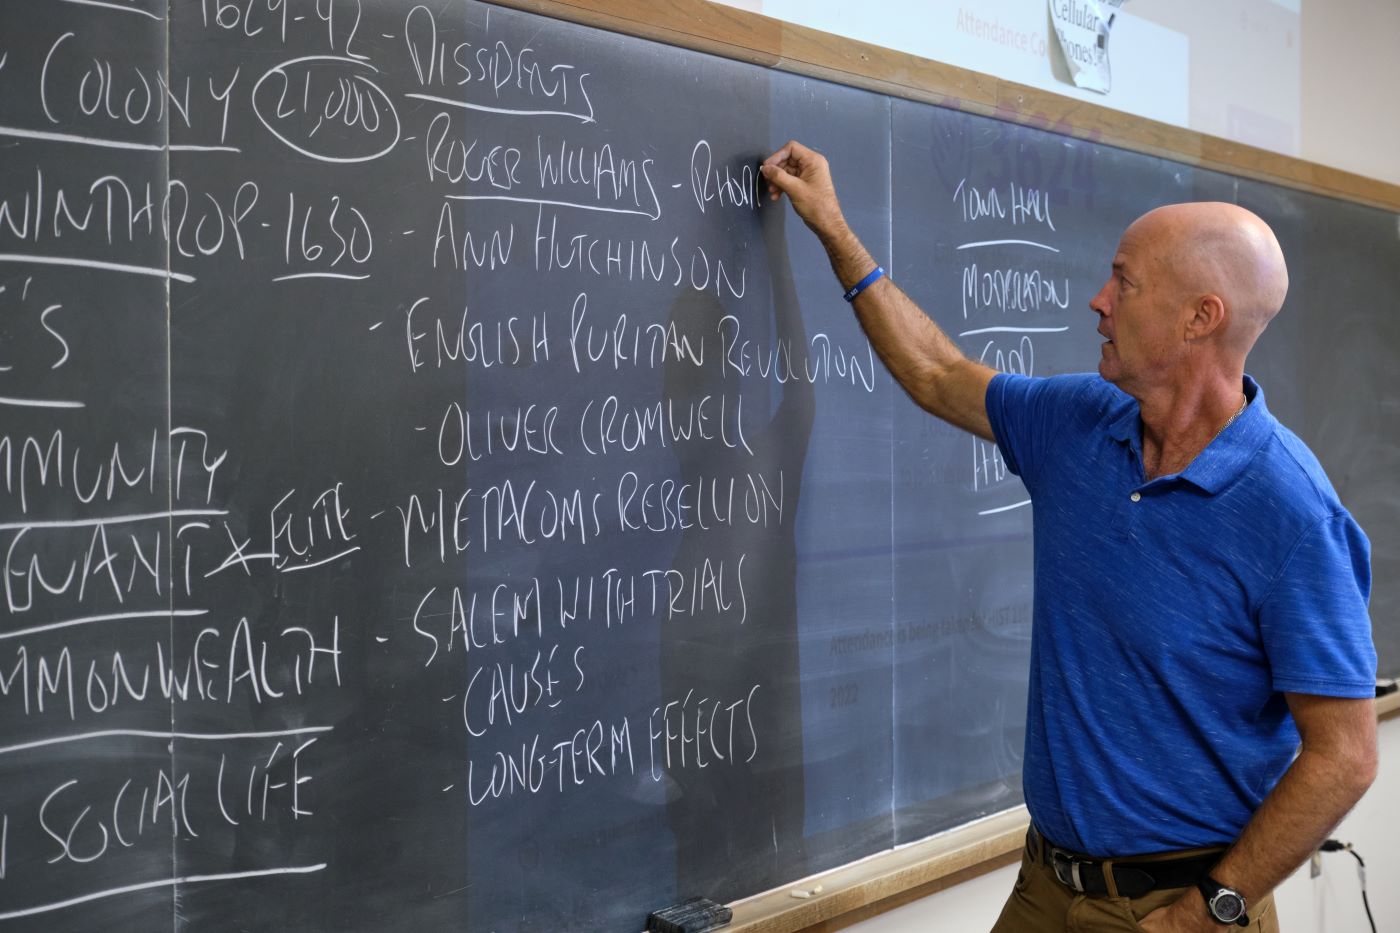 1629-42
COLONY 21,000
WINTHROP - 1630
E'S
MMUNITY
ENANT X ELITE
MMONWEALTH
SOCIAL LIFE
- DISSIDENTS
- ROGER WILLIAMS - RHOD
- ANN HUTCHINSON
- ENGLISH PURITAN REVOLUTION
- OLIVER CROMWELL
- METACOMS REBELLION
- SALEM WITH TRIALS
- CAUSES
- LONG-TERM EFFECTS
TOWN HALL
MODERATION
Attendance Co
Cellular
Phones!
3624
Attendance is being taken for HIST 21
2022